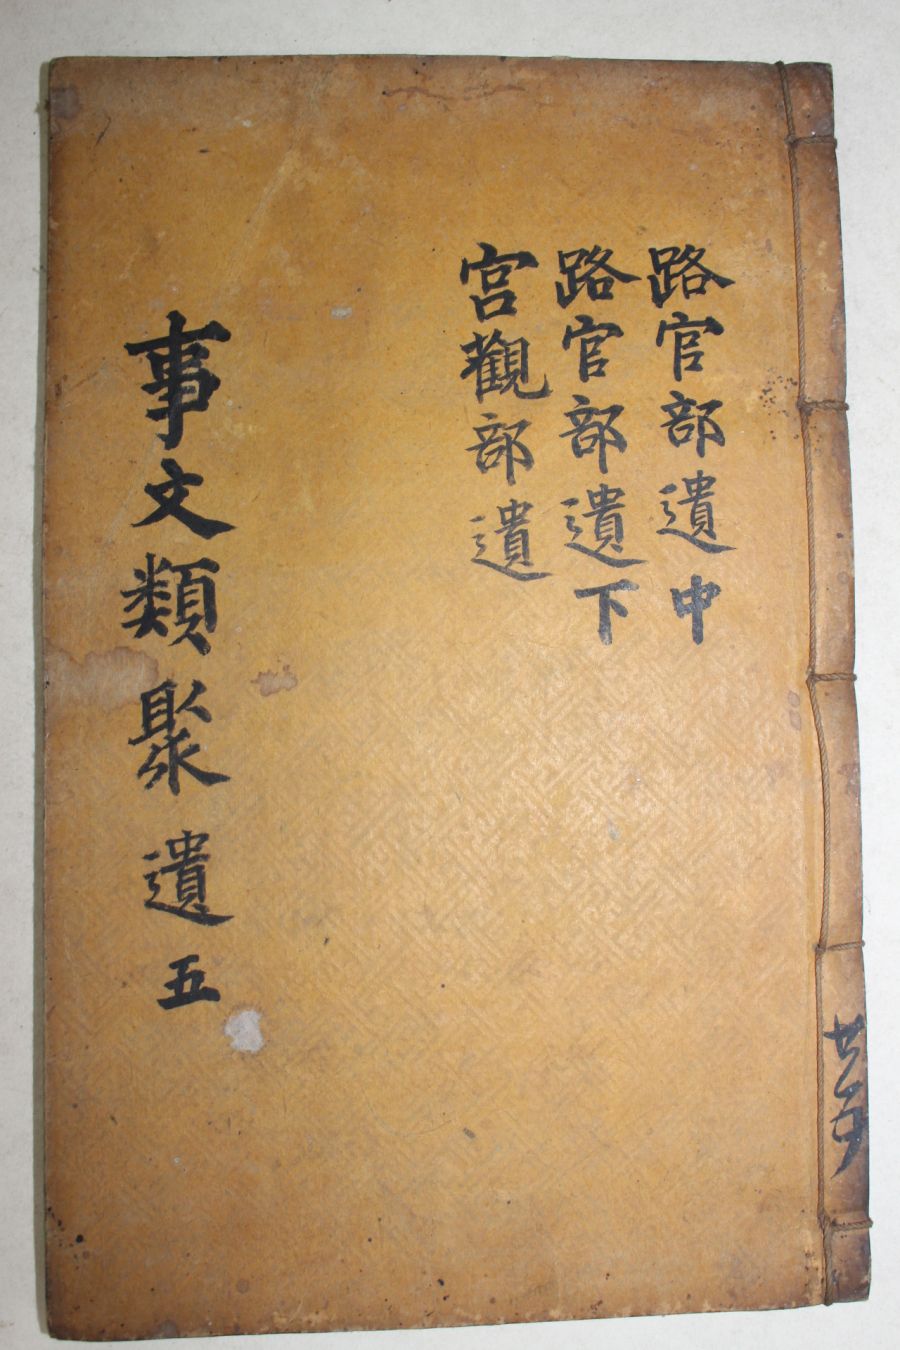 路官部遺中
路官部遺下
宮觀部遺
事文類聚遺 五